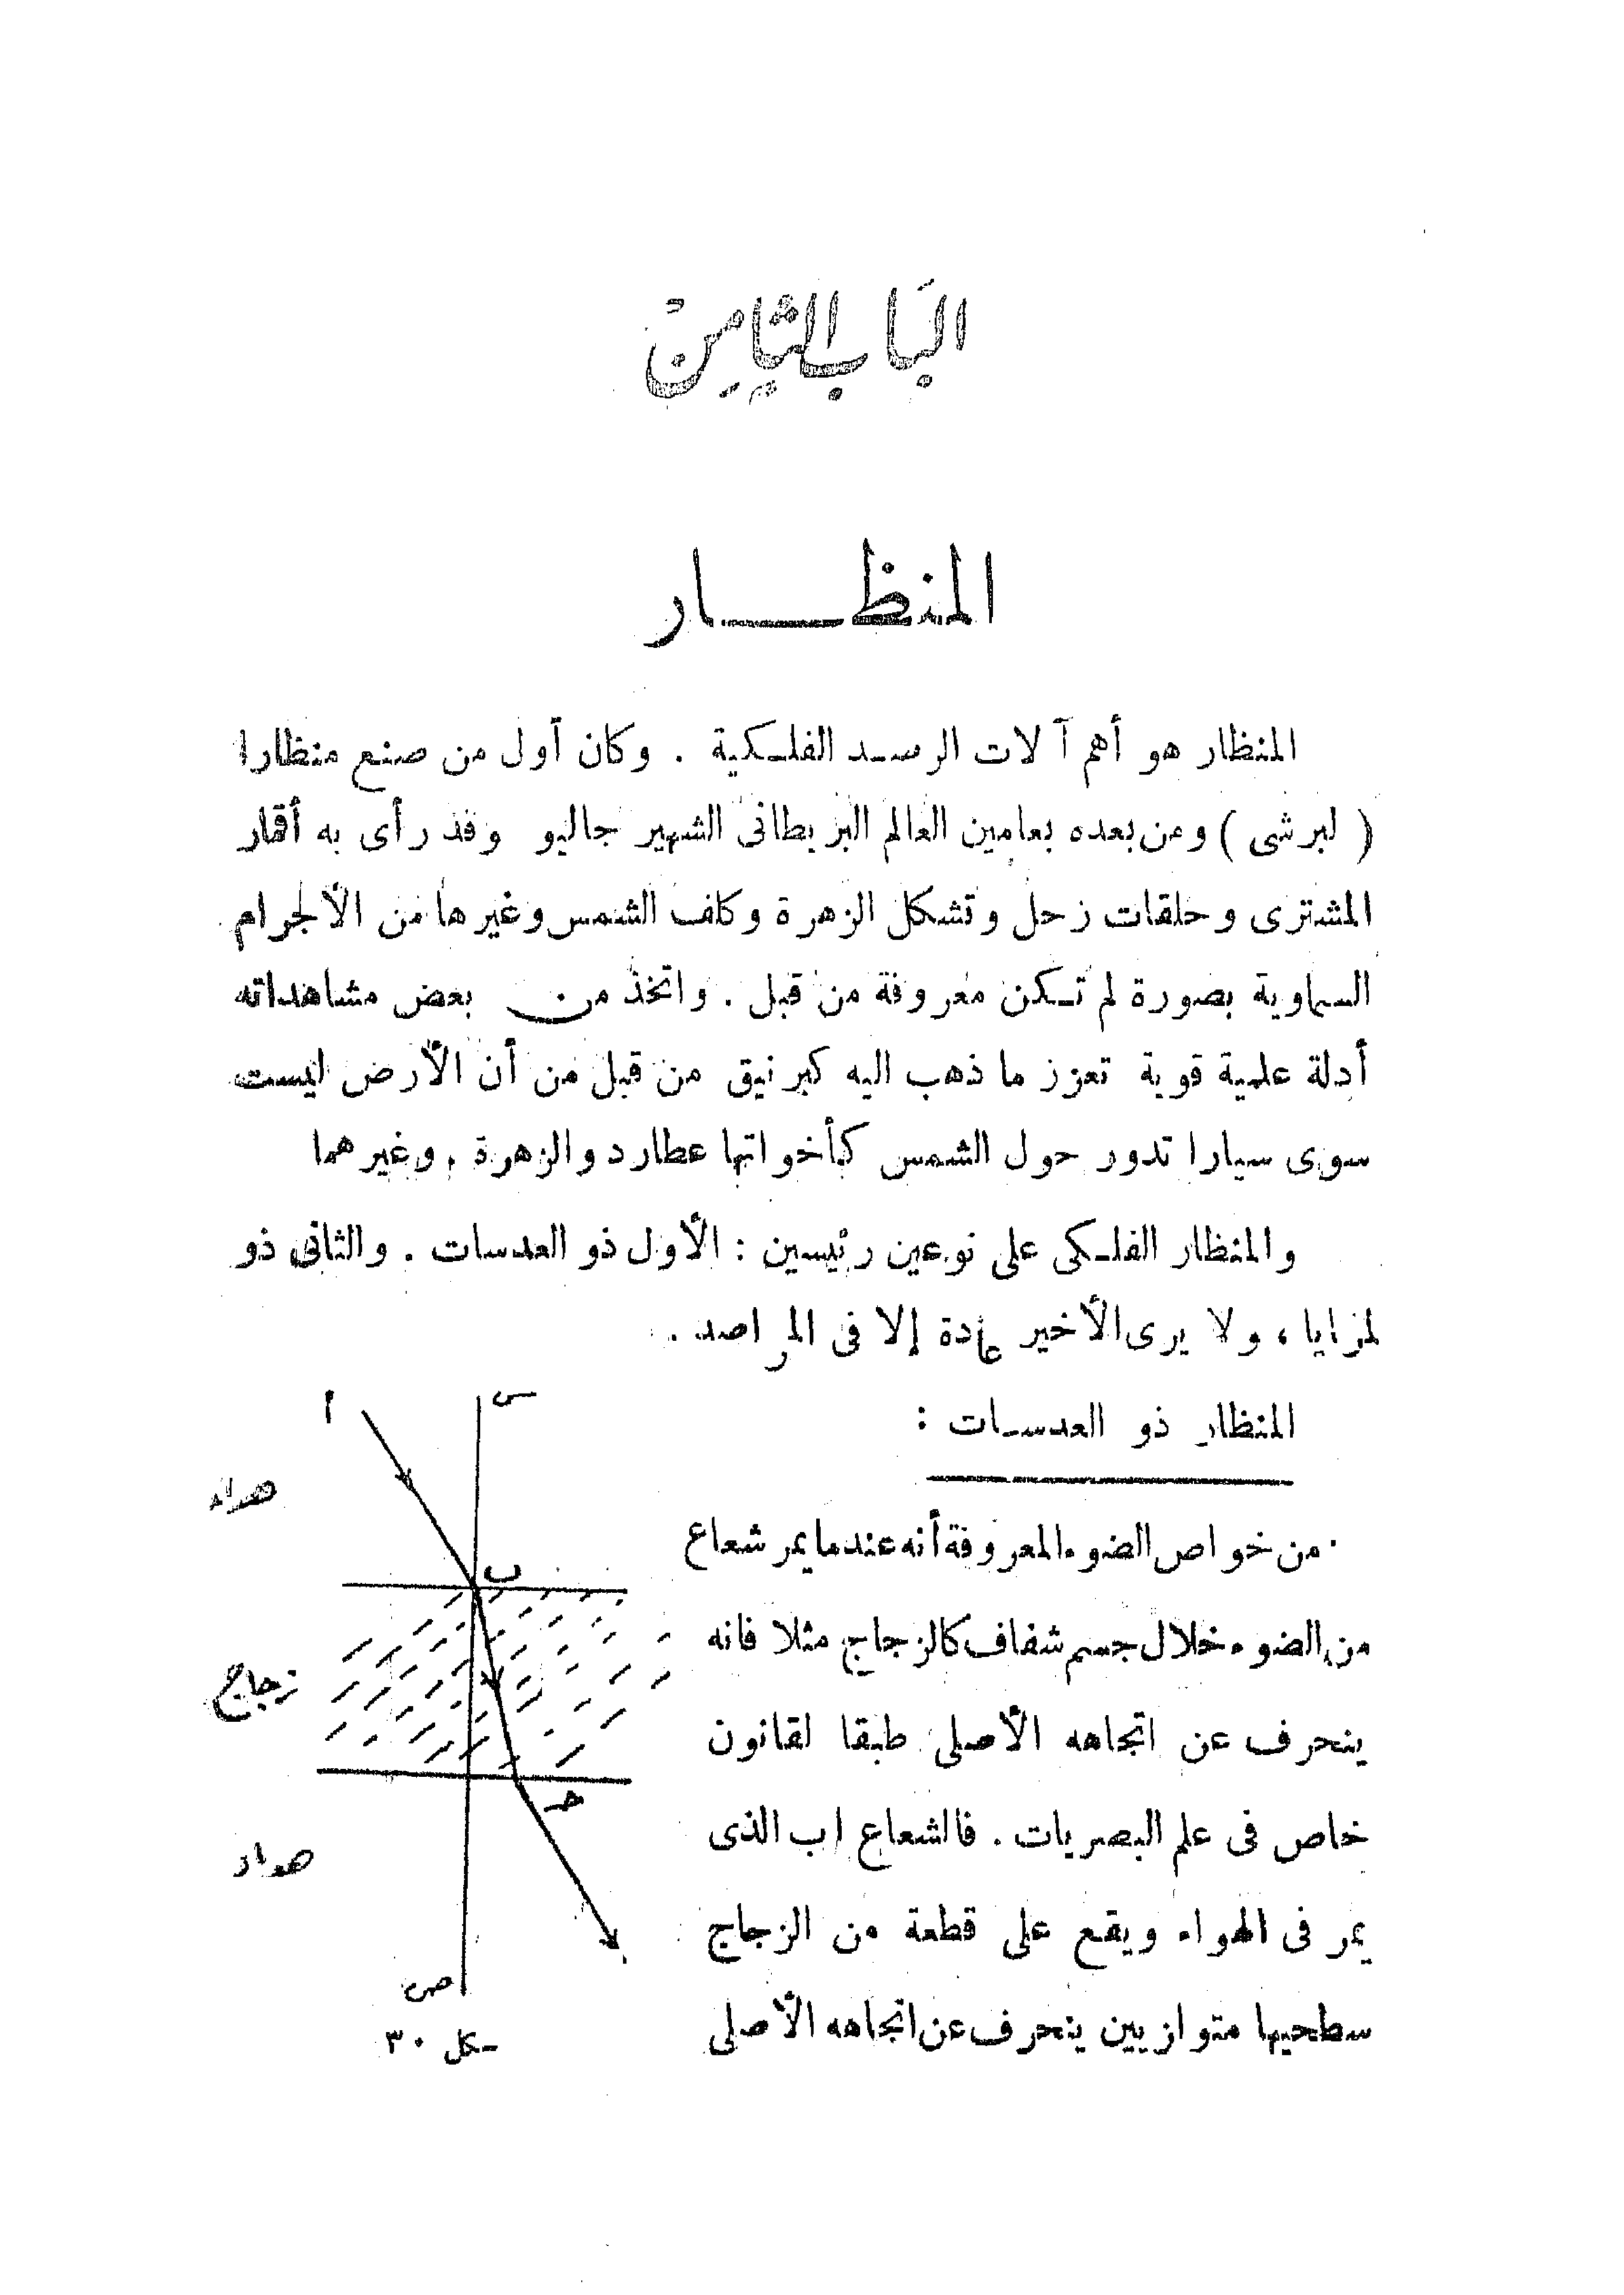 الباب الثامن
المنظـــار
المنظار هو أهم آلات الرصد الفلكية . وكان أول من صنع منظارا
( لبرشى ) ومن بعده بعامين العالم البريطانى الشهير جاليو وقد رأى به أقمار
المشترى وحلقات زحل وتشكل الزهرة وكلف الشمس وغيرها من الألجرام
السماوية بصورة لم تكن معروفة من قبل . واتخذ من بعض مشاهداته
أدلة علمية قوية تعزز ما ذهب اليه كبرنيق من قبل من أن الأرض ليست
سوى سيارا تدور حول الشمس كأخواتها عطارد والزهرة . وغيرهما
والمنظار الفلكى على نوعين رئيسين : الأول ذو العدسات . والثانى ذو
لمزايا ، ولا يرى الأخير عادة إلا فى المراصد .
المنظار ذو العدسات :
من خواص الضوء المعروفة أنه عندما يمر شعاع
من الضوء خلال جسم شفاف كالزجاج مثلا فانه
ينحرف عن اتجاهه الأصلى طبقا لقانون
خاص فى علم البصريات . فالشعاع اب الذى
يمر فى الهواء ويقع على قطعة من الزجاج
سطحيها متوازيين ينحرف عن اتجاهه الأصلى
أ
س
هواء
ب
زجاج
حـ
هواء
ص
ـكل ٣٠